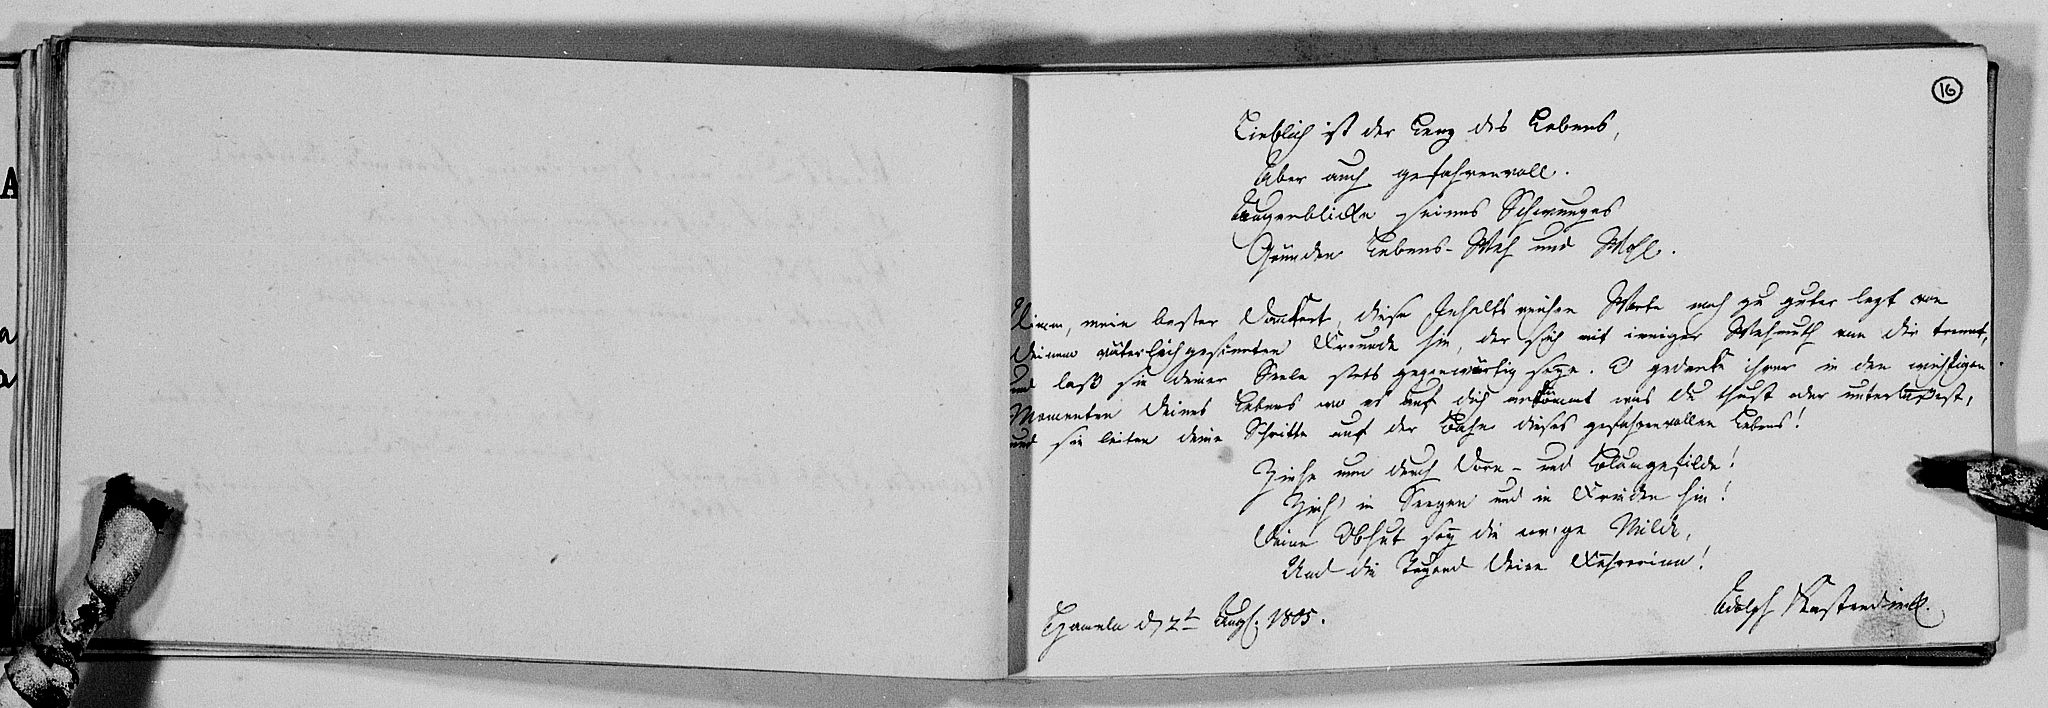 16
Lieblich ist der Lenz des Lebens,
Aber auch gefahrenvoll.
Augenblicke seines Schwunges
Gründen Lebens-Weh und Wohl.
Nimm, mein bester Dankert, diese Inhaltsreichen Worte noch zu guter lezt von
Deinem väterlich gesinnten Freunde hin, der sich mit inniger Wehmuth von dir trennt,
und laß sie deiner Seele stets gegenwärtig seyn. O gedenke ihrer in den wichtigen
Momenten deines Lebens wo es auf dich ankömmt was du thust oder unterlässest,
und sie leiten deine Schritte auf der Bahn dieses gefahrenvollen Lebens!
Ziehe nun durch Dorn- und Blumgefilde!
Zieh' in Seegen und in Frieden hin!
Deine Obhut sey die ew'ge Milde,
Und die Tugend Deine Führerinn!
d 2t Augs. 1805.
Adolph
A
a
a